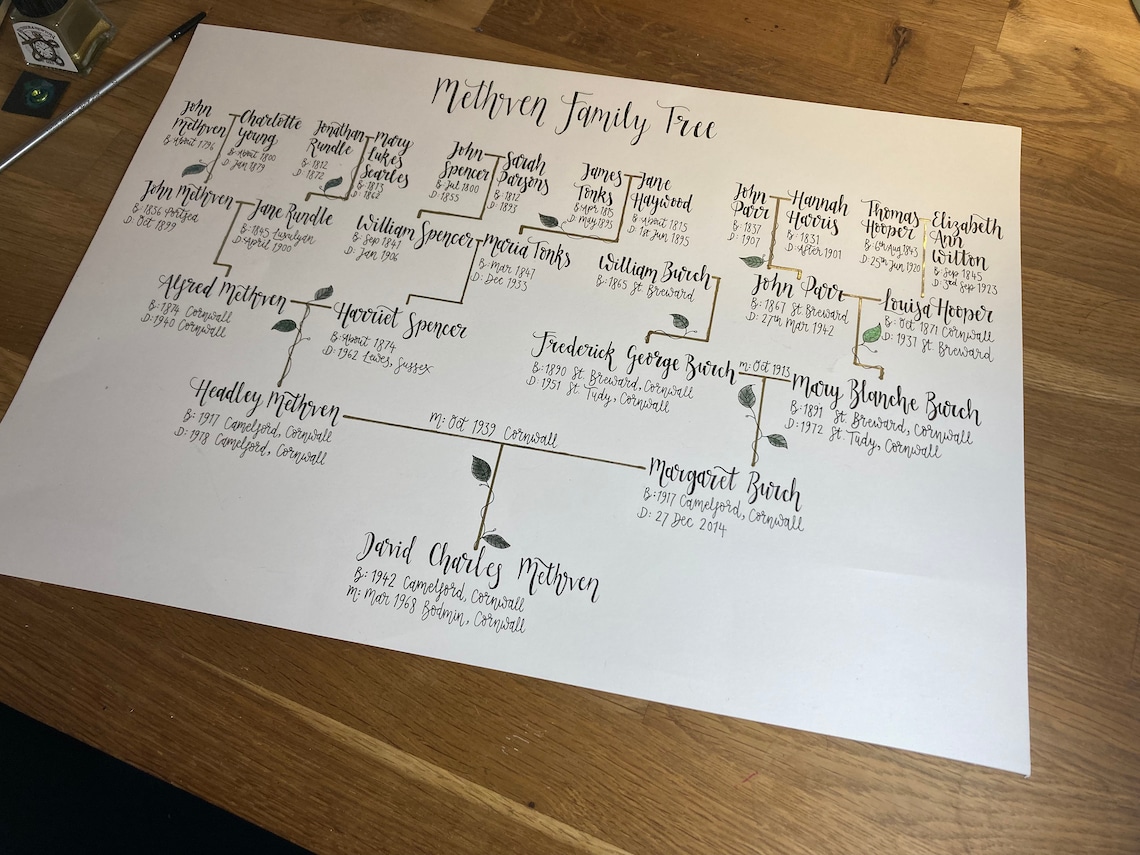 Methven Family Tree
John
Methven
B: About 1796
Charlotte
Young
B: About 1800
D: Jan 1879
Jonathan
Rundle
B: 1812
D: 1872
Mary
Lukes
Searles
B: 1813
D: 1862
John
Spencer
B: Jul 1800
D: 1855
Sarah
Parsons
B: 1812
D: 1893
James
Tonks
B: Apr 1815
D: May 1895
Jane
Haywood
B: About 1815
D: 1st Jun 1895
John
Parr
B: 1837
D: 1907
Hannah
Harris
B: 1831
D: After 1901
Thomas
Hooper
B: 6th Aug 1843
D: 25th Jun 1920
Elizabeth
Ann
Witton
B: Sep 1845
D: 3rd Sep 1923
John Methven
B: 1836 Portsea
D: Oct 1899
Jane Rundle
B: 1845 Luxulyan
D: April 1900
William Spencer
B: Sep 1841
D: Jan 1906
Maria Tonks
B: Mar 1847
D: Dec 1933
William Burch
B: 1865 St. Breward
John Parr
B: 1867 St Breward
D: 27th Mar 1942
Louisa Hooper
B: Oct 1871 Cornwall
D: 1937 St. Breward
Alfred Methven
B: 1874 Cornwall
D: 1940 Cornwall
Harriet Spencer
B: About 1874
D: 1962 Lewes, Sussex
Frederick George Burch
B: 1890 St. Breward, Cornwall
D: 1951 St. Tudy, Cornwall
m: Oct 1913
Mary Blanche Burch
B: 1891 St. Breward, Cornwall
D: 1972 St. Tudy, Cornwall
Headley Methven
B: 1917 Camelford, Cornwall
D: 1978 Camelford, Cornwall
m: Oct 1939 Cornwall
Margaret Burch
B: 1917 Camelford, Cornwall
D: 27 Dec 2014
David Charles Methven
B: 1942 Camelford, Cornwall
m: Mar 1968 Bodmin, Cornwall